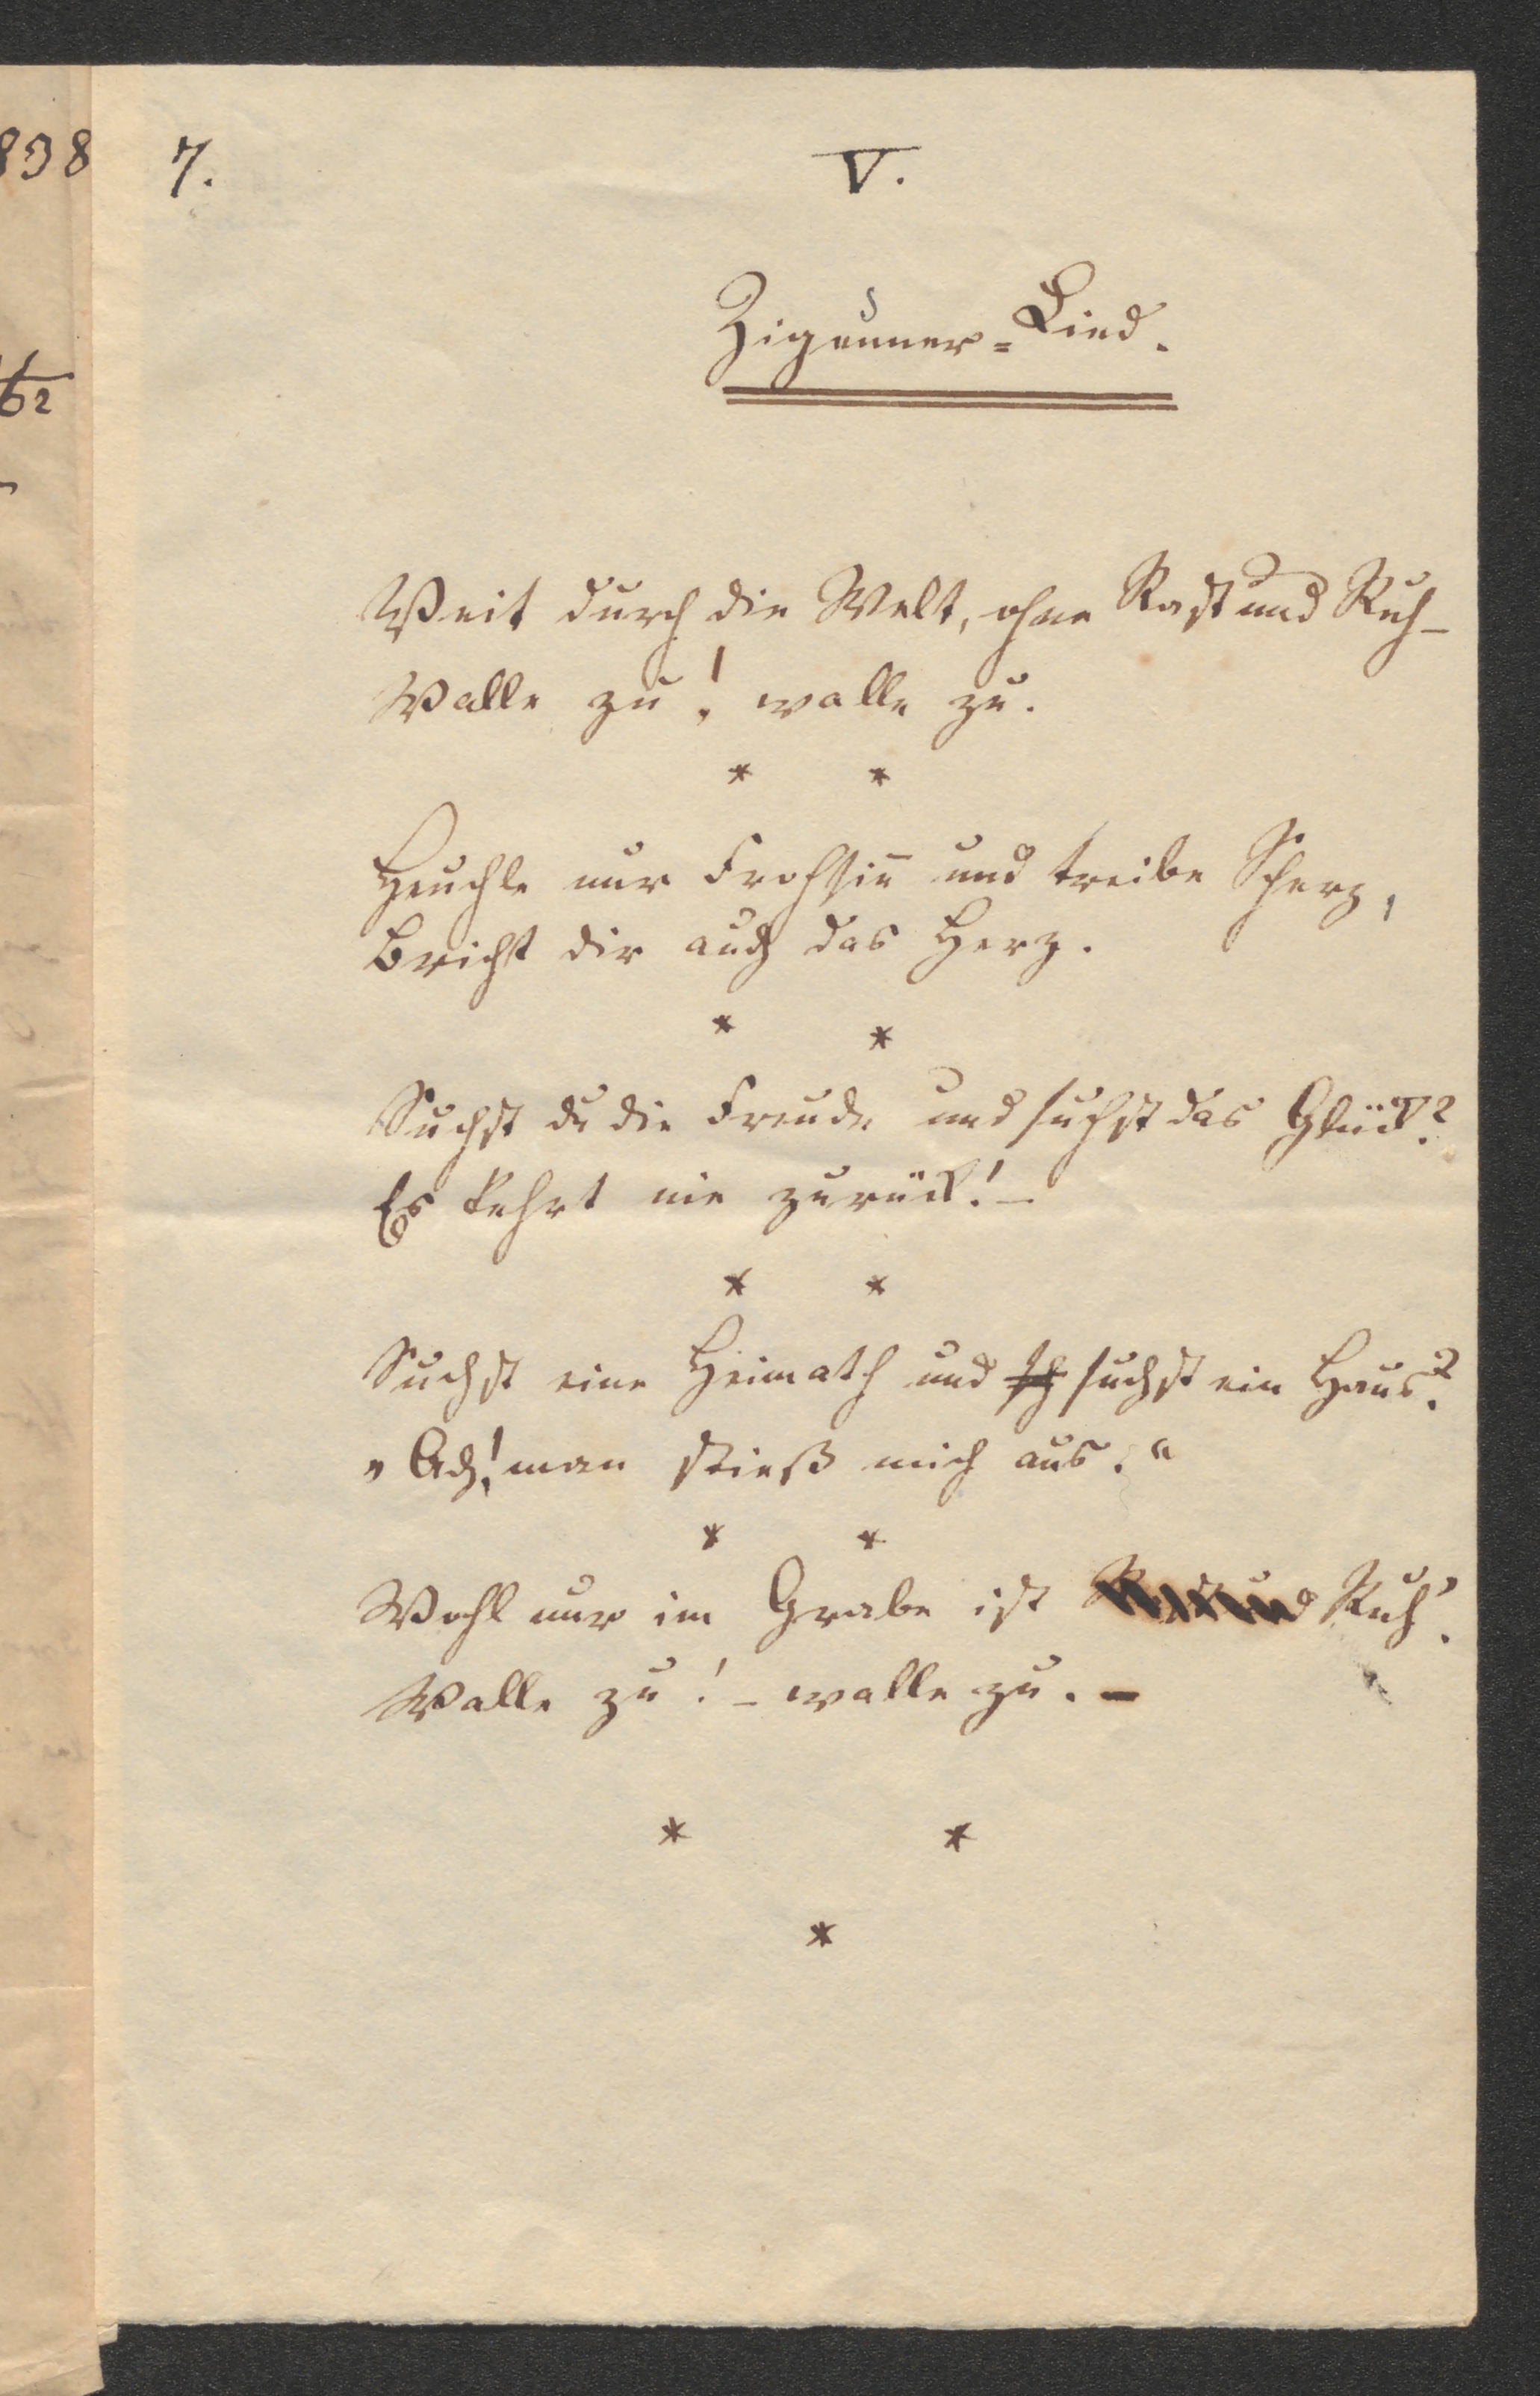 838
7.
V.
Zigeuner=Lied.
62
Weit durch die Welt, ohne Rast und Ruh –
Walle zu! walle zu.
* *
Heuchle nur Frohsin̅ und treibe Scherz,
Bricht dir auch das Herz.
* *
Suchst du die Freude und suchst das Glück?
Es kehrt nie zurück! –
* *
Suchst eine Heimath und suchst ein Haus?
„Ach! man stieß mich aus.“
* *
Wohl nur im Grabe ist Rast und Ruh'.
Walle zu! – walle zu. –
* *
*